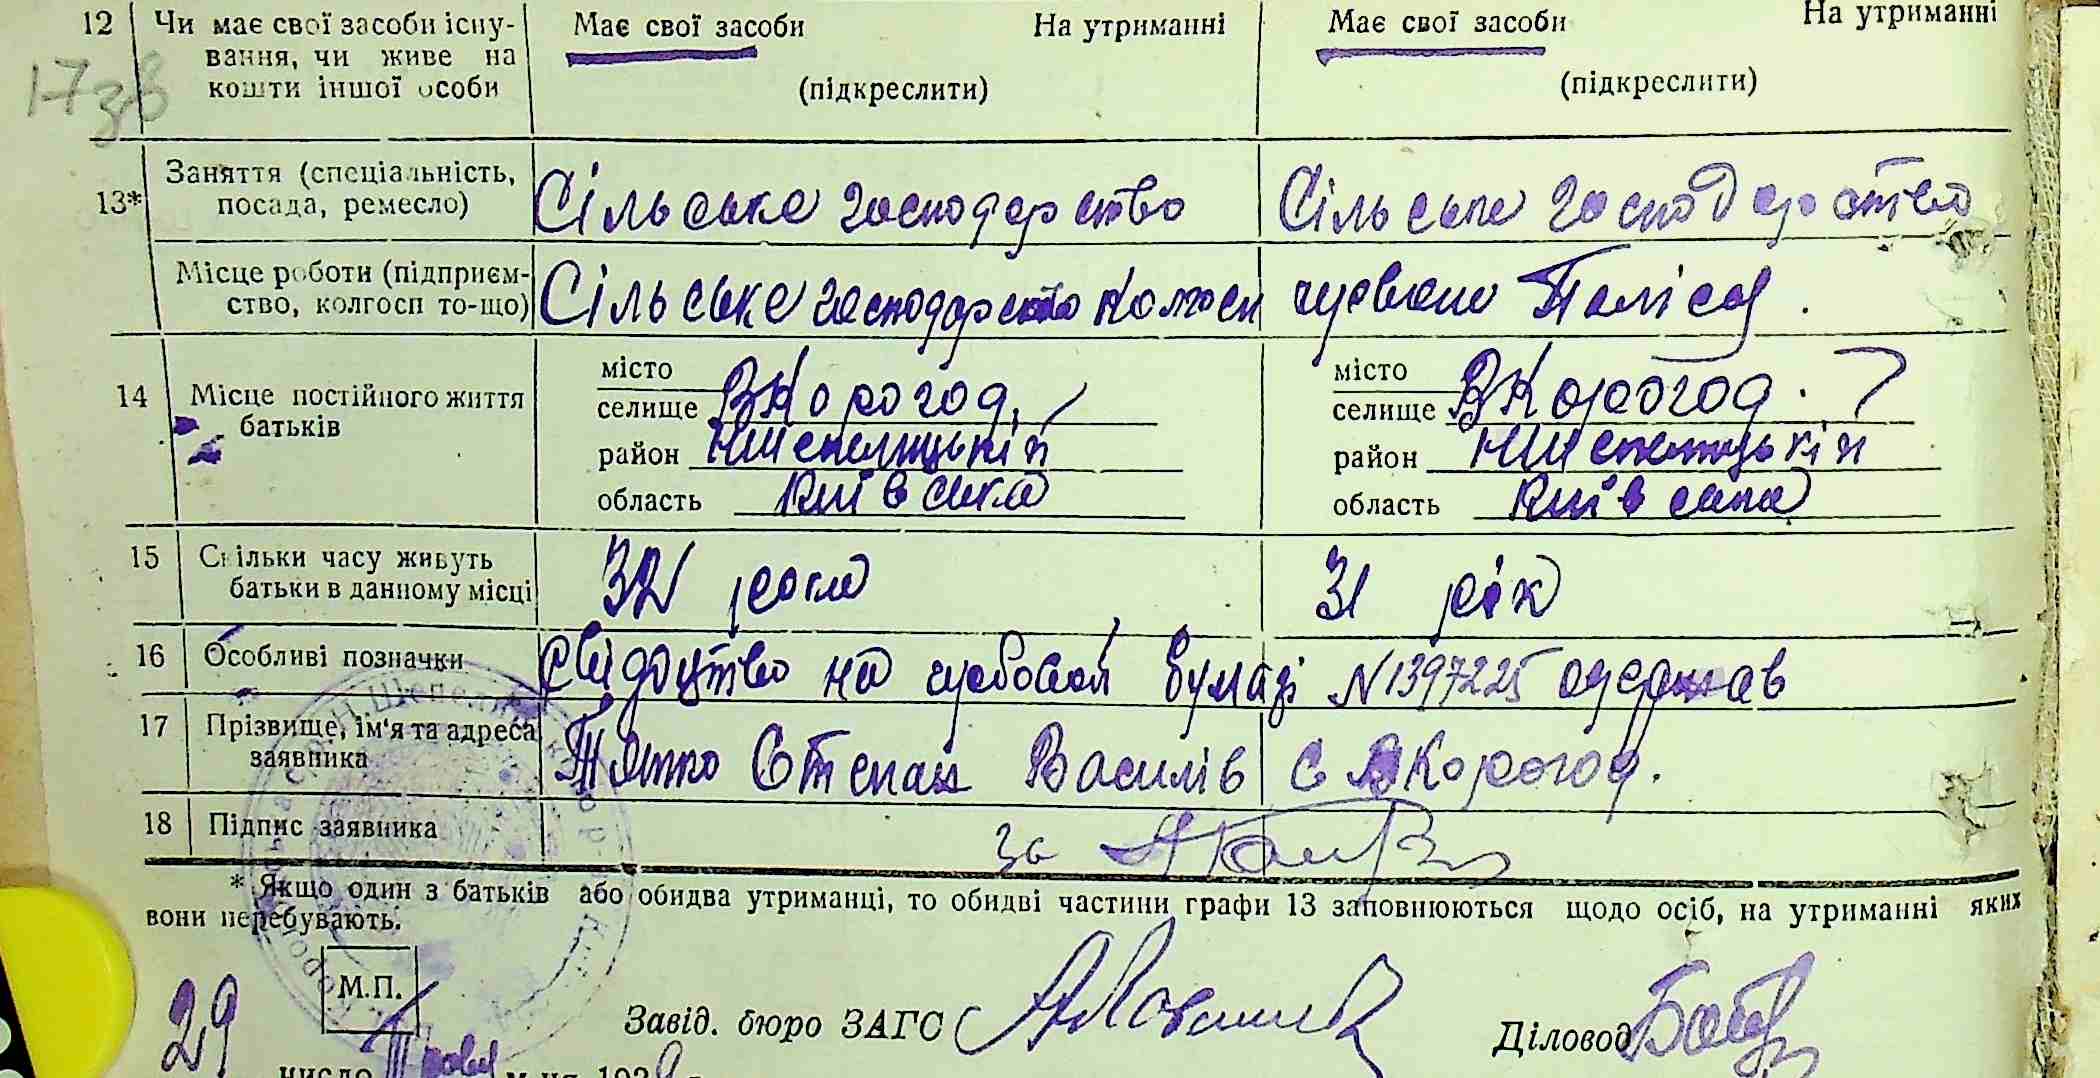 12 Чи має свої засоби існу-вання, чи живе на кошти іншої особи Має свої засоби На утриманні (підкреслити) Має свої засоби На утриманні (підкреслити)
17зв
13* Заняття (спеціальність, посада, ремесло) Сільське господарство Сільське господарство
Місце роботи (підприєм-ство, колгосп то-що) Сільське господарство колгосп червоне Полісся.
14 Місце постійного життя батьків
місто
селище ВКорогод, місто селище ВКорогод.
район НШепелицький район НШепелицький
область Київська область Київська
15 Скільки часу живуть батьки в данному місці 32 роки 31 рік
16 Особливі позначки Свідоцтво на гербовой бумазі №1397225 одержав
17 Прізвище, ім'я та адреса заявника Степан Василів с ВКорогод.
18 Підпис заявника за
* Якщо один з батьків або обидва утриманні, то обидві частини графи 13 заповнюються щодо осіб, на утриманні яких
вони перебувають.
М.П.
29
Завід. бюро ЗАГС Діловод
число Травня м-ця 193